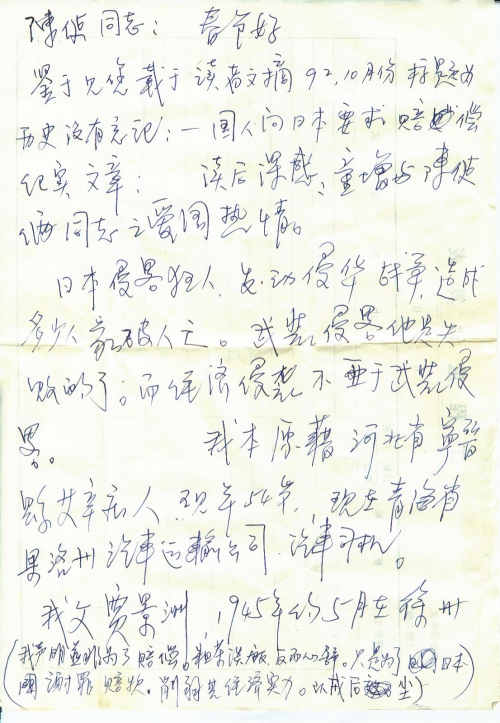 陳侦同志： 春节好
鉴于兄凭载于读者文摘92.10月份标题为
历史没有忘记：一国人向日本要求赔偿
纪实文章： 读后深感：童增与陳侦
俩同志之爱国热情。
日本侵略狂人，发动侵华战争，造成
多少人家破人亡。武装侵略他是失
败的了。而经济侵袭不亚于武装侵
略。 我本原籍河北省寧晋
县艾辛庄人，现年54岁，现在青海省
果洛州汽車运輸公司，汽車司机。
我父贾景洲，1945年约5月在徐州
（我声明並非为了赔偿。只是为了日本
国谢罪赔款。削弱其经济实力。以戒后